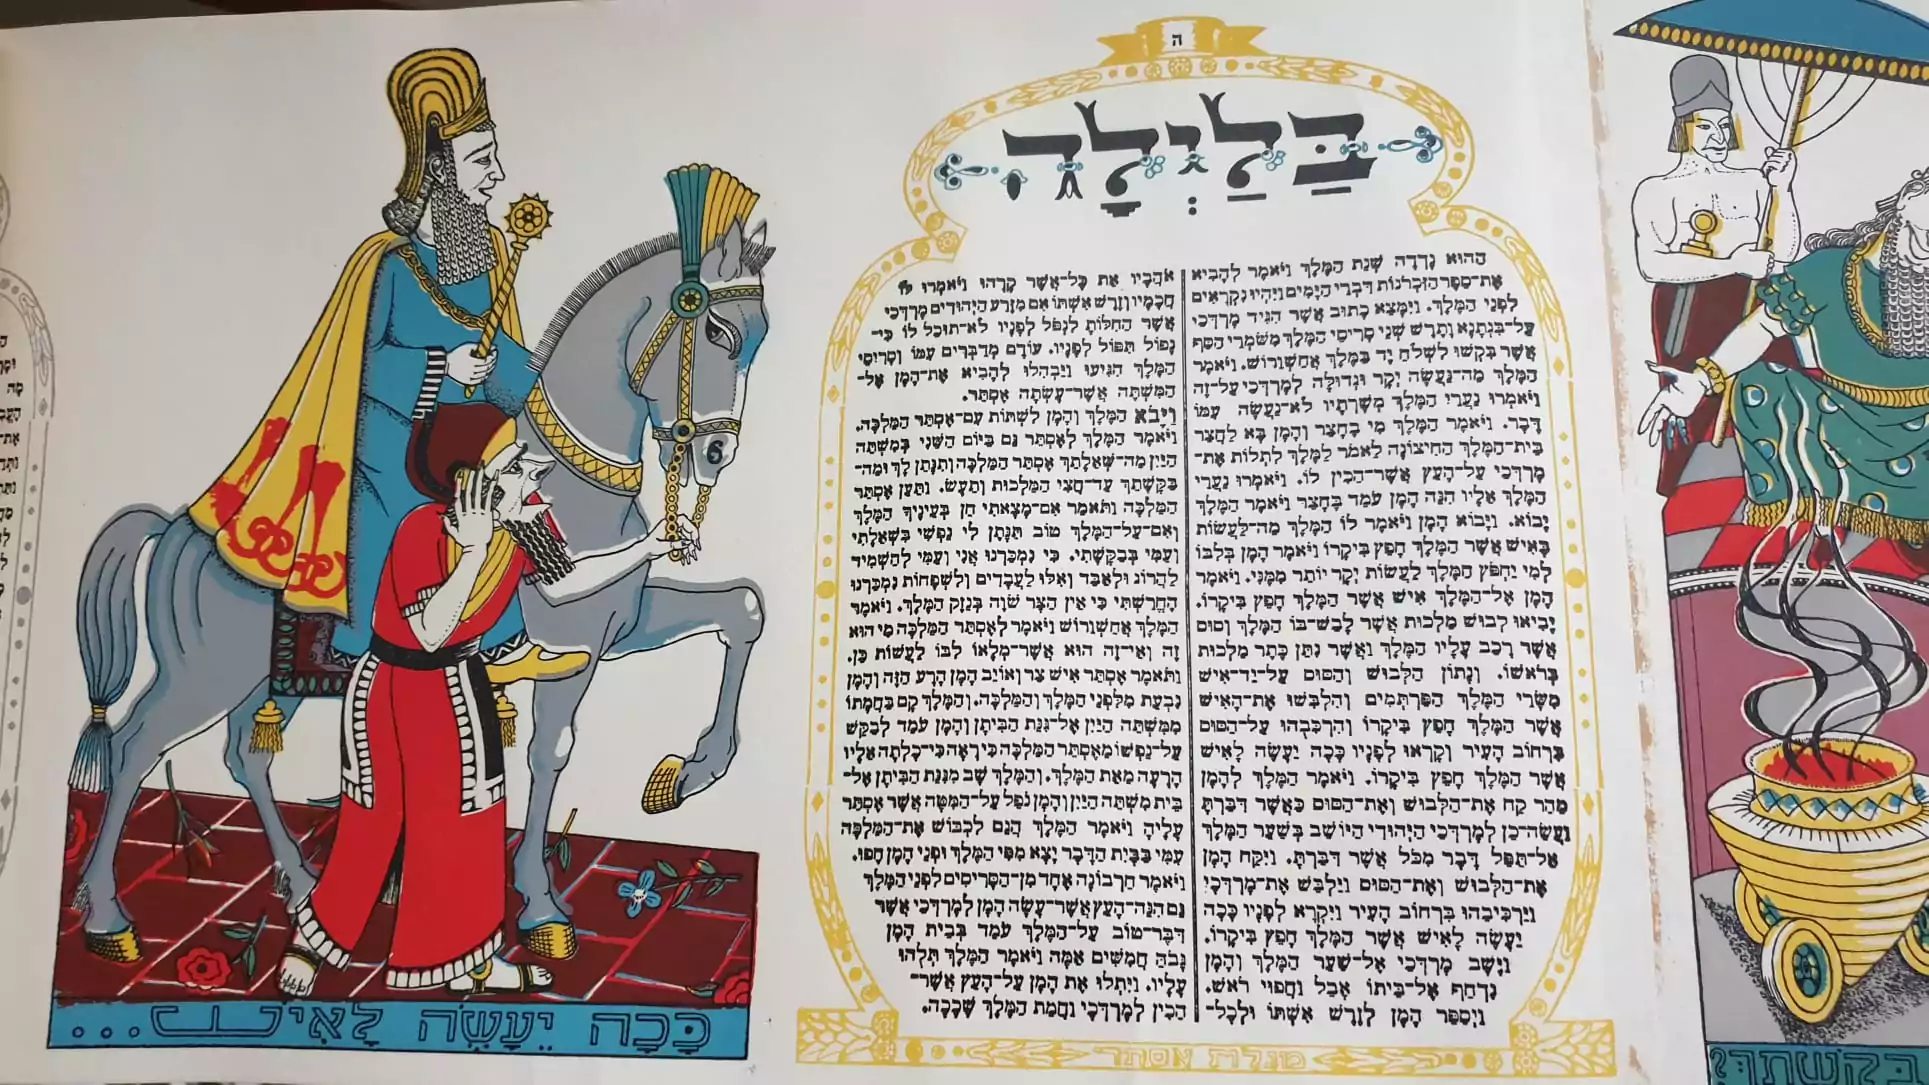 ה
בַּלַּיְלָה
הַהוּא נָדְדָה שְׁנַת הַמֶּלֶךְ וַיֹּאמֶר לְהָבִיא
אֶת־סֵפֶר הַזִּכְרֹנוֹת דִּבְרֵי הַיָּמִים וַיִּהְיוּ נִקְרָאִים
לִפְנֵי הַמֶּלֶךְ. וַיִּמָּצֵא כָתוּב אֲשֶׁר הִגִּיד מָרְדֳּכַי
עַל־בִּגְתָנָא וָתֶרֶשׁ שְׁנֵי סָרִיסֵי הַמֶּלֶךְ מִשֹּׁמְרֵי הַסַּף
אֲשֶׁר בִּקְשׁוּ לִשְׁלֹחַ יָד בַּמֶּלֶךְ אֲחַשְׁוֵרוֹשׁ. וַיֹּאמֶר
הַמֶּלֶךְ מַה־נַּעֲשָׂה יְקָר וּגְדוּלָּה לְמָרְדֳּכַי עַל־זֶה
וַיֹּאמְרוּ נַעֲרֵי הַמֶּלֶךְ מְשָׁרְתָיו לֹא־נַעֲשָׂה עִמּוֹ
דָּבָר. וַיֹּאמֶר הַמֶּלֶךְ מִי בֶחָצֵר וְהָמָן בָּא לַחֲצַר
בֵּית־הַמֶּלֶךְ הַחִיצוֹנָה לֵאמֹר לַמֶּלֶךְ לִתְלוֹת אֶת־
מָרְדֳּכַי עַל־הָעֵץ אֲשֶׁר־הֵכִין לוֹ. וַיֹּאמְרוּ נַעֲרֵי
הַמֶּלֶךְ אֵלָיו הִנֵּה הָמָן עֹמֵד בֶּחָצֵר וַיֹּאמֶר הַמֶּלֶךְ
יָבוֹא. וַיָּבוֹא הָמָן וַיֹּאמֶר לוֹ הַמֶּלֶךְ מַה־לַּעֲשׂוֹת
בָּאִישׁ אֲשֶׁר הַמֶּלֶךְ חָפֵץ בִּיקָרוֹ וַיֹּאמֶר הָמָן בְּלִבּוֹ
לְמִי יַחְפֹּץ הַמֶּלֶךְ לַעֲשׂוֹת יְקָר יוֹתֵר מִמֶּנִּי. וַיֹּאמֶר
הָמָן אֶל־הַמֶּלֶךְ אִישׁ אֲשֶׁר הַמֶּלֶךְ חָפֵץ בִּיקָרוֹ.
יָבִיאוּ לְבוּשׁ מַלְכוּת אֲשֶׁר לָבַשׁ־בּוֹ הַמֶּלֶךְ וְסוּס
אֲשֶׁר רָכַב עָלָיו הַמֶּלֶךְ וַאֲשֶׁר נִתַּן כֶּתֶר מַלְכוּת
בְּרֹאשׁוֹ. וְנָתוֹן הַלְּבוּשׁ וְהַסּוּס עַל־יַד־אִישׁ
מִשָּׂרֵי הַמֶּלֶךְ הַפַּרְתְּמִים וְהִלְבִּשׁוּ אֶת־הָאִישׁ
אֲשֶׁר הַמֶּלֶךְ חָפֵץ בִּיקָרוֹ וְהִרְכִּבֻהוּ עַל־הַסּוּס
בִּרְחוֹב הָעִיר וְקָרְאוּ לְפָנָיו כָּכָה יֵעָשֶׂה לָאִישׁ
אֲשֶׁר הַמֶּלֶךְ חָפֵץ בִּיקָרוֹ. וַיֹּאמֶר הַמֶּלֶךְ לְהָמָן
מַהֵר קַח אֶת־הַלְּבוּשׁ וְאֶת־הַסּוּס כַּאֲשֶׁר דִּבַּרְתָּ
וַעֲשֵׂה־כֵן לְמָרְדֳּכַי הַיְּהוּדִי הַיּוֹשֵׁב בְּשַׁעַר הַמֶּלֶךְ
אַל־תַּפֵּל דָּבָר מִכֹּל אֲשֶׁר דִּבַּרְתָּ. וַיִּקַּח הָמָן
אֶת־הַלְּבוּשׁ וְאֶת־הַסּוּס וַיַּלְבֵּשׁ אֶת־מָרְדֳּכָי
וַיַּרְכִּיבֵהוּ בִּרְחוֹב הָעִיר וַיִּקְרָא לְפָנָיו כָּכָה
יֵעָשֶׂה לָאִישׁ אֲשֶׁר הַמֶּלֶךְ חָפֵץ בִּיקָרוֹ.
וַיָּשָׁב מָרְדֳּכַי אֶל־שַׁעַר הַמֶּלֶךְ וְהָמָן
נִדְחַף אֶל־בֵּיתוֹ אָבֵל וַחֲפוּי רֹאשׁ.
וַיְסַפֵּר הָמָן לְזֶרֶשׁ אִשְׁתּוֹ וּלְכָל־
אֹהֲבָיו אֵת כָּל־אֲשֶׁר קָרָהוּ וַיֹּאמְרוּ לוֹ
חֲכָמָיו וְזֶרֶשׁ אִשְׁתּוֹ אִם מִזֶּרַע הַיְּהוּדִים מָרְדֳּכַי
אֲשֶׁר הַחִלּוֹתָ לִנְפֹּל לְפָנָיו לֹא־תוּכַל לוֹ כִּי־
נָפוֹל תִּפּוֹל לְפָנָיו. עוֹדָם מְדַבְּרִים עִמּוֹ וְסָרִיסֵי
הַמֶּלֶךְ הִגִּיעוּ וַיַּבְהִלוּ לְהָבִיא אֶת־הָמָן אֶל־
הַמִּשְׁתֶּה אֲשֶׁר־עָשְׂתָה אֶסְתֵּר.
וַיָּבֹא הַמֶּלֶךְ וְהָמָן לִשְׁתּוֹת עִם־אֶסְתֵּר הַמַּלְכָּה.
וַיֹּאמֶר הַמֶּלֶךְ לְאֶסְתֵּר גַּם בַּיּוֹם הַשֵּׁנִי בְּמִשְׁתֵּה
הַיַּיִן מַה־שְּׁאֵלָתֵךְ אֶסְתֵּר הַמַּלְכָּה וְתִנָּתֵן לָךְ וּמַה־
בַּקָּשָׁתֵךְ עַד־חֲצִי הַמַּלְכוּת וְתֵעָשׂ. וַתַּעַן אֶסְתֵּר
הַמַּלְכָּה וַתֹּאמַר אִם־מָצָאתִי חֵן בְּעֵינֶיךָ הַמֶּלֶךְ
וְאִם־עַל־הַמֶּלֶךְ טוֹב תִּנָּתֶן לִי נַפְשִׁי בִּשְׁאֵלָתִי
וְעַמִּי בְּבַקָּשָׁתִי. כִּי נִמְכַּרְנוּ אֲנִי וְעַמִּי לְהַשְׁמִיד
לַהֲרוֹג וּלְאַבֵּד וְאִלּוּ לַעֲבָדִים וְלִשְׁפָחוֹת נִמְכַּרְנוּ
הֶחֱרַשְׁתִּי כִּי אֵין הַצָּר שֹׁוֶה בְּנֵזֶק הַמֶּלֶךְ. וַיֹּאמֶר
הַמֶּלֶךְ אֲחַשְׁוֵרוֹשׁ וַיֹּאמֶר לְאֶסְתֵּר הַמַּלְכָּה מִי הוּא
זֶה וְאֵי־זֶה הוּא אֲשֶׁר־מְלָאוֹ לִבּוֹ לַעֲשׂוֹת כֵּן.
וַתֹּאמֶר אֶסְתֵּר אִישׁ צַר וְאוֹיֵב הָמָן הָרָע הַזֶּה וְהָמָן
נִבְעַת מִלִּפְנֵי הַמֶּלֶךְ וְהַמַּלְכָּה. וְהַמֶּלֶךְ קָם בַּחֲמָתוֹ
מִמִּשְׁתֵּה הַיַּיִן אֶל־גִּנַּת הַבִּיתָן וְהָמָן עָמַד לְבַקֵּשׁ
עַל־נַפְשׁוֹ מֵאֶסְתֵּר הַמַּלְכָּה כִּי רָאָה כִּי־כָלְתָה אֵלָיו
הָרָעָה מֵאֵת הַמֶּלֶךְ. וְהַמֶּלֶךְ שָׁב מִגִּנַּת הַבִּיתָן אֶל־
בֵּית מִשְׁתֵּה הַיַּיִן וְהָמָן נֹפֵל עַל־הַמִּטָּה אֲשֶׁר אֶסְתֵּר
עָלֶיהָ וַיֹּאמֶר הַמֶּלֶךְ הֲגַם לִכְבּוֹשׁ אֶת־הַמַּלְכָּה
עִמִּי בַּבָּיִת הַדָּבָר יָצָא מִפִּי הַמֶּלֶךְ וּפְנֵי הָמָן חָפוּ.
וַיֹּאמֶר חַרְבוֹנָה אֶחָד מִן־הַסָּרִיסִים לִפְנֵי הַמֶּלֶךְ
גַּם הִנֵּה־הָעֵץ אֲשֶׁר־עָשָׂה הָמָן לְמָרְדֳּכַי אֲשֶׁר
דִּבֶּר־טוֹב עַל־הַמֶּלֶךְ עֹמֵד בְּבֵית הָמָן
גָּבֹהַּ חֲמִשִּׁים אַמָּה וַיֹּאמֶר הַמֶּלֶךְ תְּלֻהוּ
עָלָיו. וַיִּתְלוּ אֶת הָמָן עַל־הָעֵץ אֲשֶׁר־
הֵכִין לְמָרְדֳּכָי וַחֲמַת הַמֶּלֶךְ שָׁכָכָה.
מגלת אסתר
כָּכָה יֵעָשֶׂה לָאִישׁ...
בקשתך?